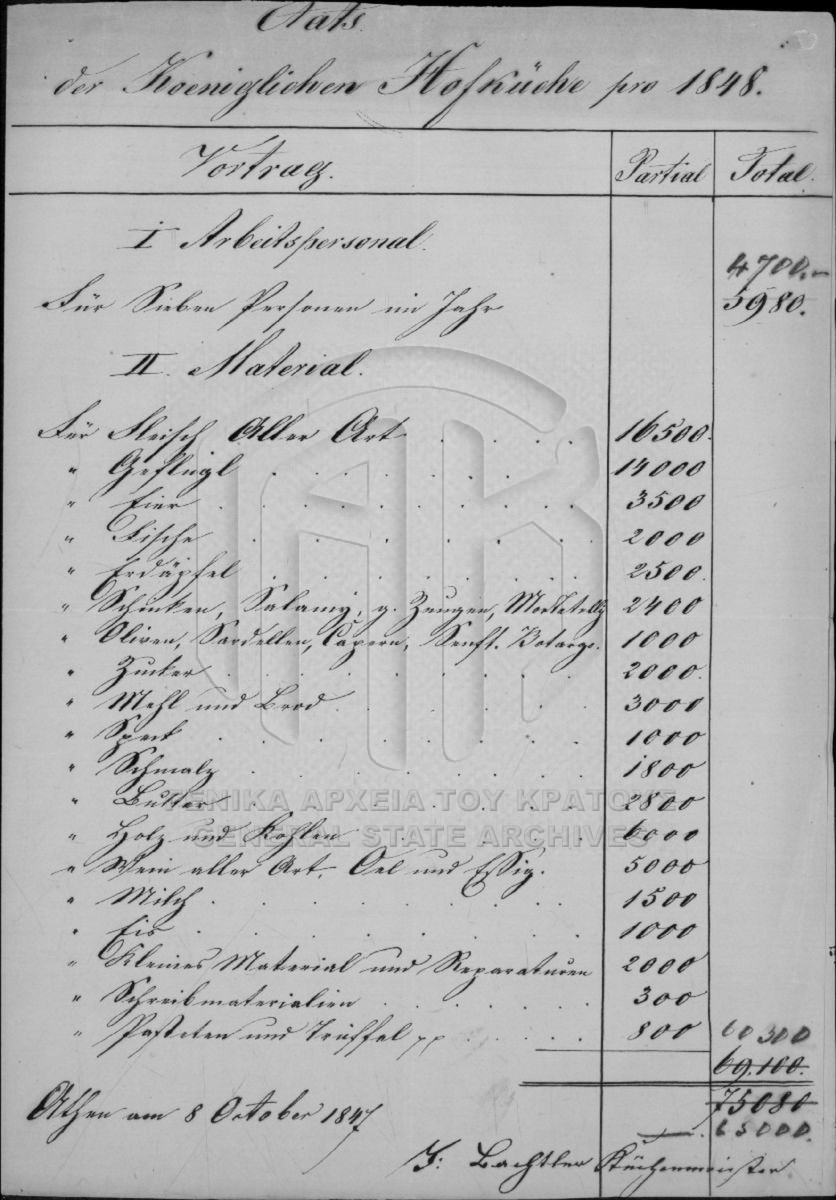 Etats
der Koeniglichen Hofküche pro 1848.
Vortrag. Partial Total.
I Arbeitspersonal.
4700.-
Für Sieben Personen im Jahr 5980.
II. Material.
Für Fleisch Aller Art . . . . . 16500.
" Geflügl . . . . . . . . 14000
" Eier . . . . . . . . . 3500
" Fische . . . . . . . . 2000
" Erdäpfel . . . . . . . . 2500.
" Schinken, Salamy, g. Zungen, 2400
" Oliven, Sardellen, Capern, Senft. Botargo. 1000
" Zucker . . . . . . . . 2000.
" Mehl und Brod . . . . . . 3000
" Speck . . . . . . . . 1000
" Schmalz . . . . . . . . 1800
" Butter . . . . . . . . 2800
" Holz und Kohlen . . . . . 6000
" Wein aller Art, Oel und Essig. 5000
" Milch . . . . . . . . 1500
" Eis . . . . . . . . . 1000
" Kleines Material und Reparaturen 2000
" Schreibmaterialien . . . . . 300
" Pasteten und Trüffel pp . . . . 800 60300
69.100.
75080
Athen am 8 October 1847
65000.
J: Bachtler Küchenmeister
ΓΕΝΙΚΑ ΑΡΧΕΙΑ ΤΟΥ ΚΡΑΤΟΥΣ
GENERAL STATE ARCHIVES